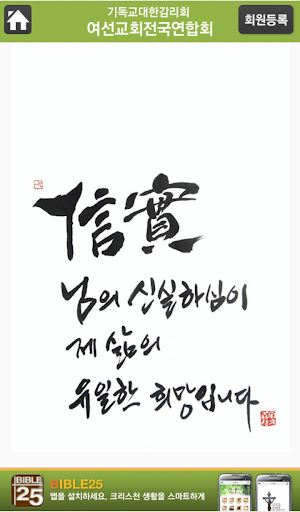 기독교대한감리회
여선교회전국연합회
회원등록
信實
님의 신실하심이
제 삶의
유일한 희망입니다
BIBLE
25
BIBLE25
앱을 설치하세요. 크리스천 생활을 스마트하게